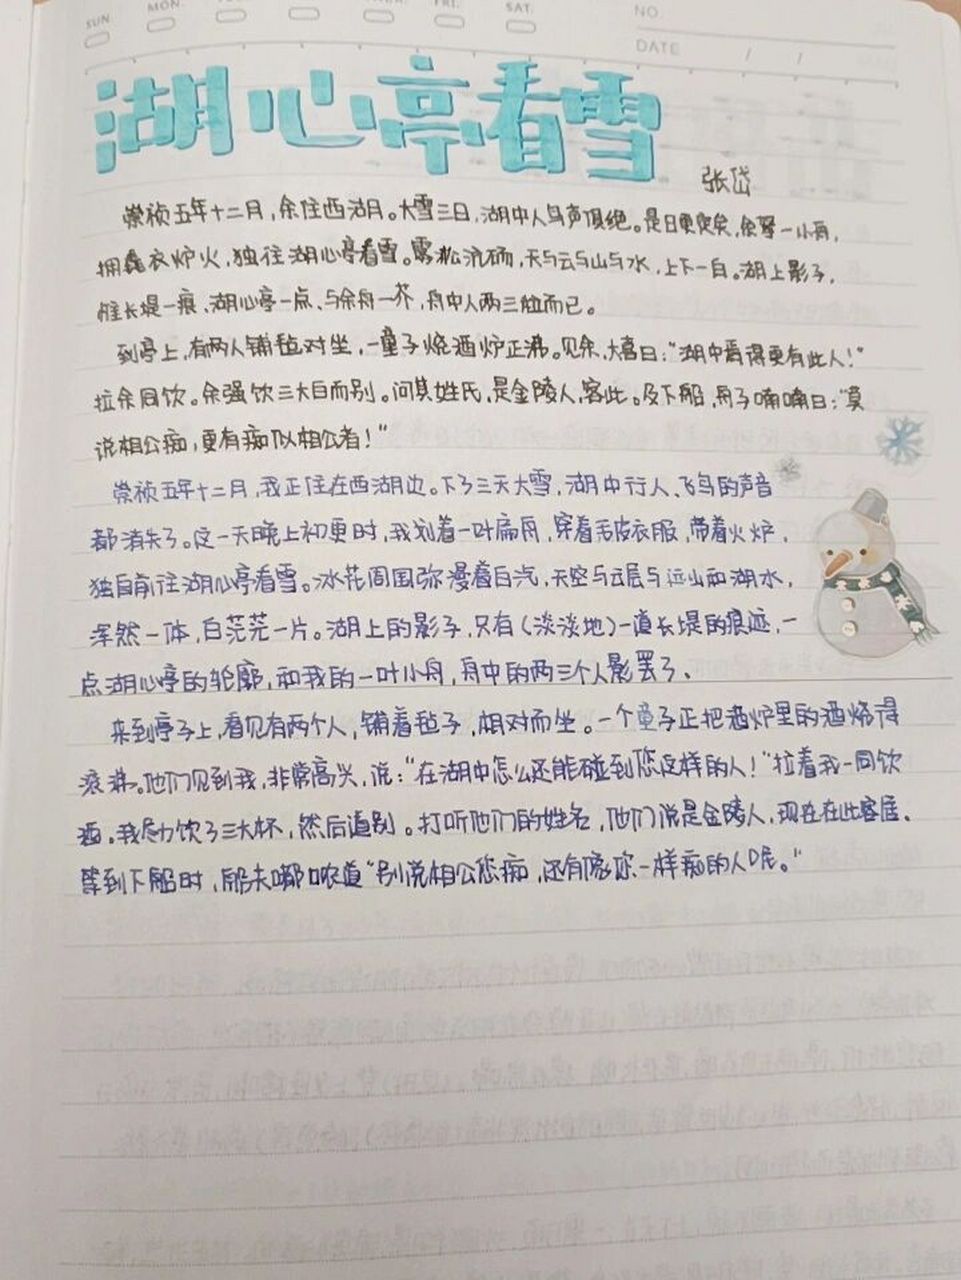 SUN. MON. FRI. SAT.
NO.
DATE / /
湖心亭看雪
张岱
崇祯五年十二月，余住西湖。大雪三日，湖中人鸟声俱绝。是日更定矣，余拏一小舟，
拥毳衣炉火，独往湖心亭看雪。雾凇沆砀，天与云与山与水，上下一白。湖上影子，
惟长堤一痕、湖心亭一点、与余舟一芥，舟中人两三粒而已。
到亭上，有两人铺毡对坐，一童子烧酒炉正沸。见余，大喜曰："湖中焉得更有此人！"
拉余同饮。余强饮三大白而别。问其姓氏，是金陵人，客此。及下船，舟子喃喃曰："莫
说相公痴，更有痴似相公者！"
崇祯五年十二月，我正住在西湖边。下了三天大雪，湖中行人、飞鸟的声音
都消失了。这一天晚上初更时，我划着一叶扁舟，穿着毛皮衣服，带着火炉，
独自前往湖心亭看雪。冰花周围弥漫着白汽，天空与云层与远山和湖水，
浑然一体，白茫茫一片。湖上的影子，只有（淡淡地）一道长堤的痕迹，一
点湖心亭的轮廓，和我的一叶小舟，舟中的两三个人影罢了、
来到亭子上，看见有两个人，铺着毡子，相对而坐。一个童子正把酒炉里的酒烧得
滚沸。他们见到我，非常高兴，说："在湖中怎么还能碰到您这样的人！"拉着我一同饮
酒。我尽力饮了三大杯，然后道别。打听他们的姓名，他们说是金陵人，现在在此客居。
等到下船时，船夫嘟哝道"别说相公您痴，还有像你一样痴的人呢。"